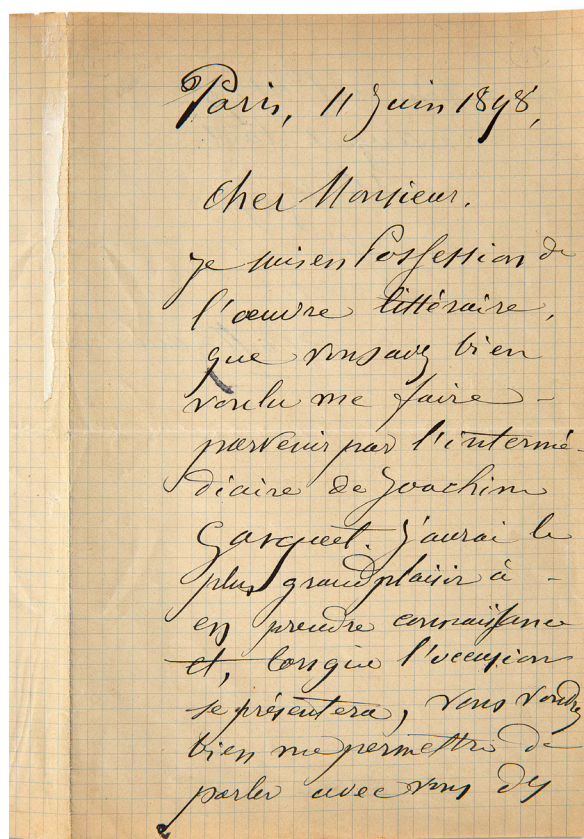 Paris, 11 Juin 1898,
cher Monsieur.
je suis en Possession de
l'œuvre littéraire,
que vous avez bien
voulu me faire -
parvenir par l'intermé-
diaire de Joachim
Gasquet. J'aurai le
plus grand plaisir à -
en prendre connaissance
et, lorsque l'occasion
se présentera, vous voudrez
bien me permettre de
parler avec vous des